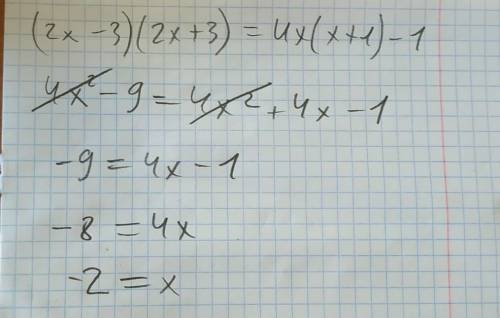 (2x - 3)(2x + 3) = 4x(x + 1) - 1
4x² - 9 = 4x² + 4x - 1
-9 = 4x - 1
-8 = 4x
-2 = x